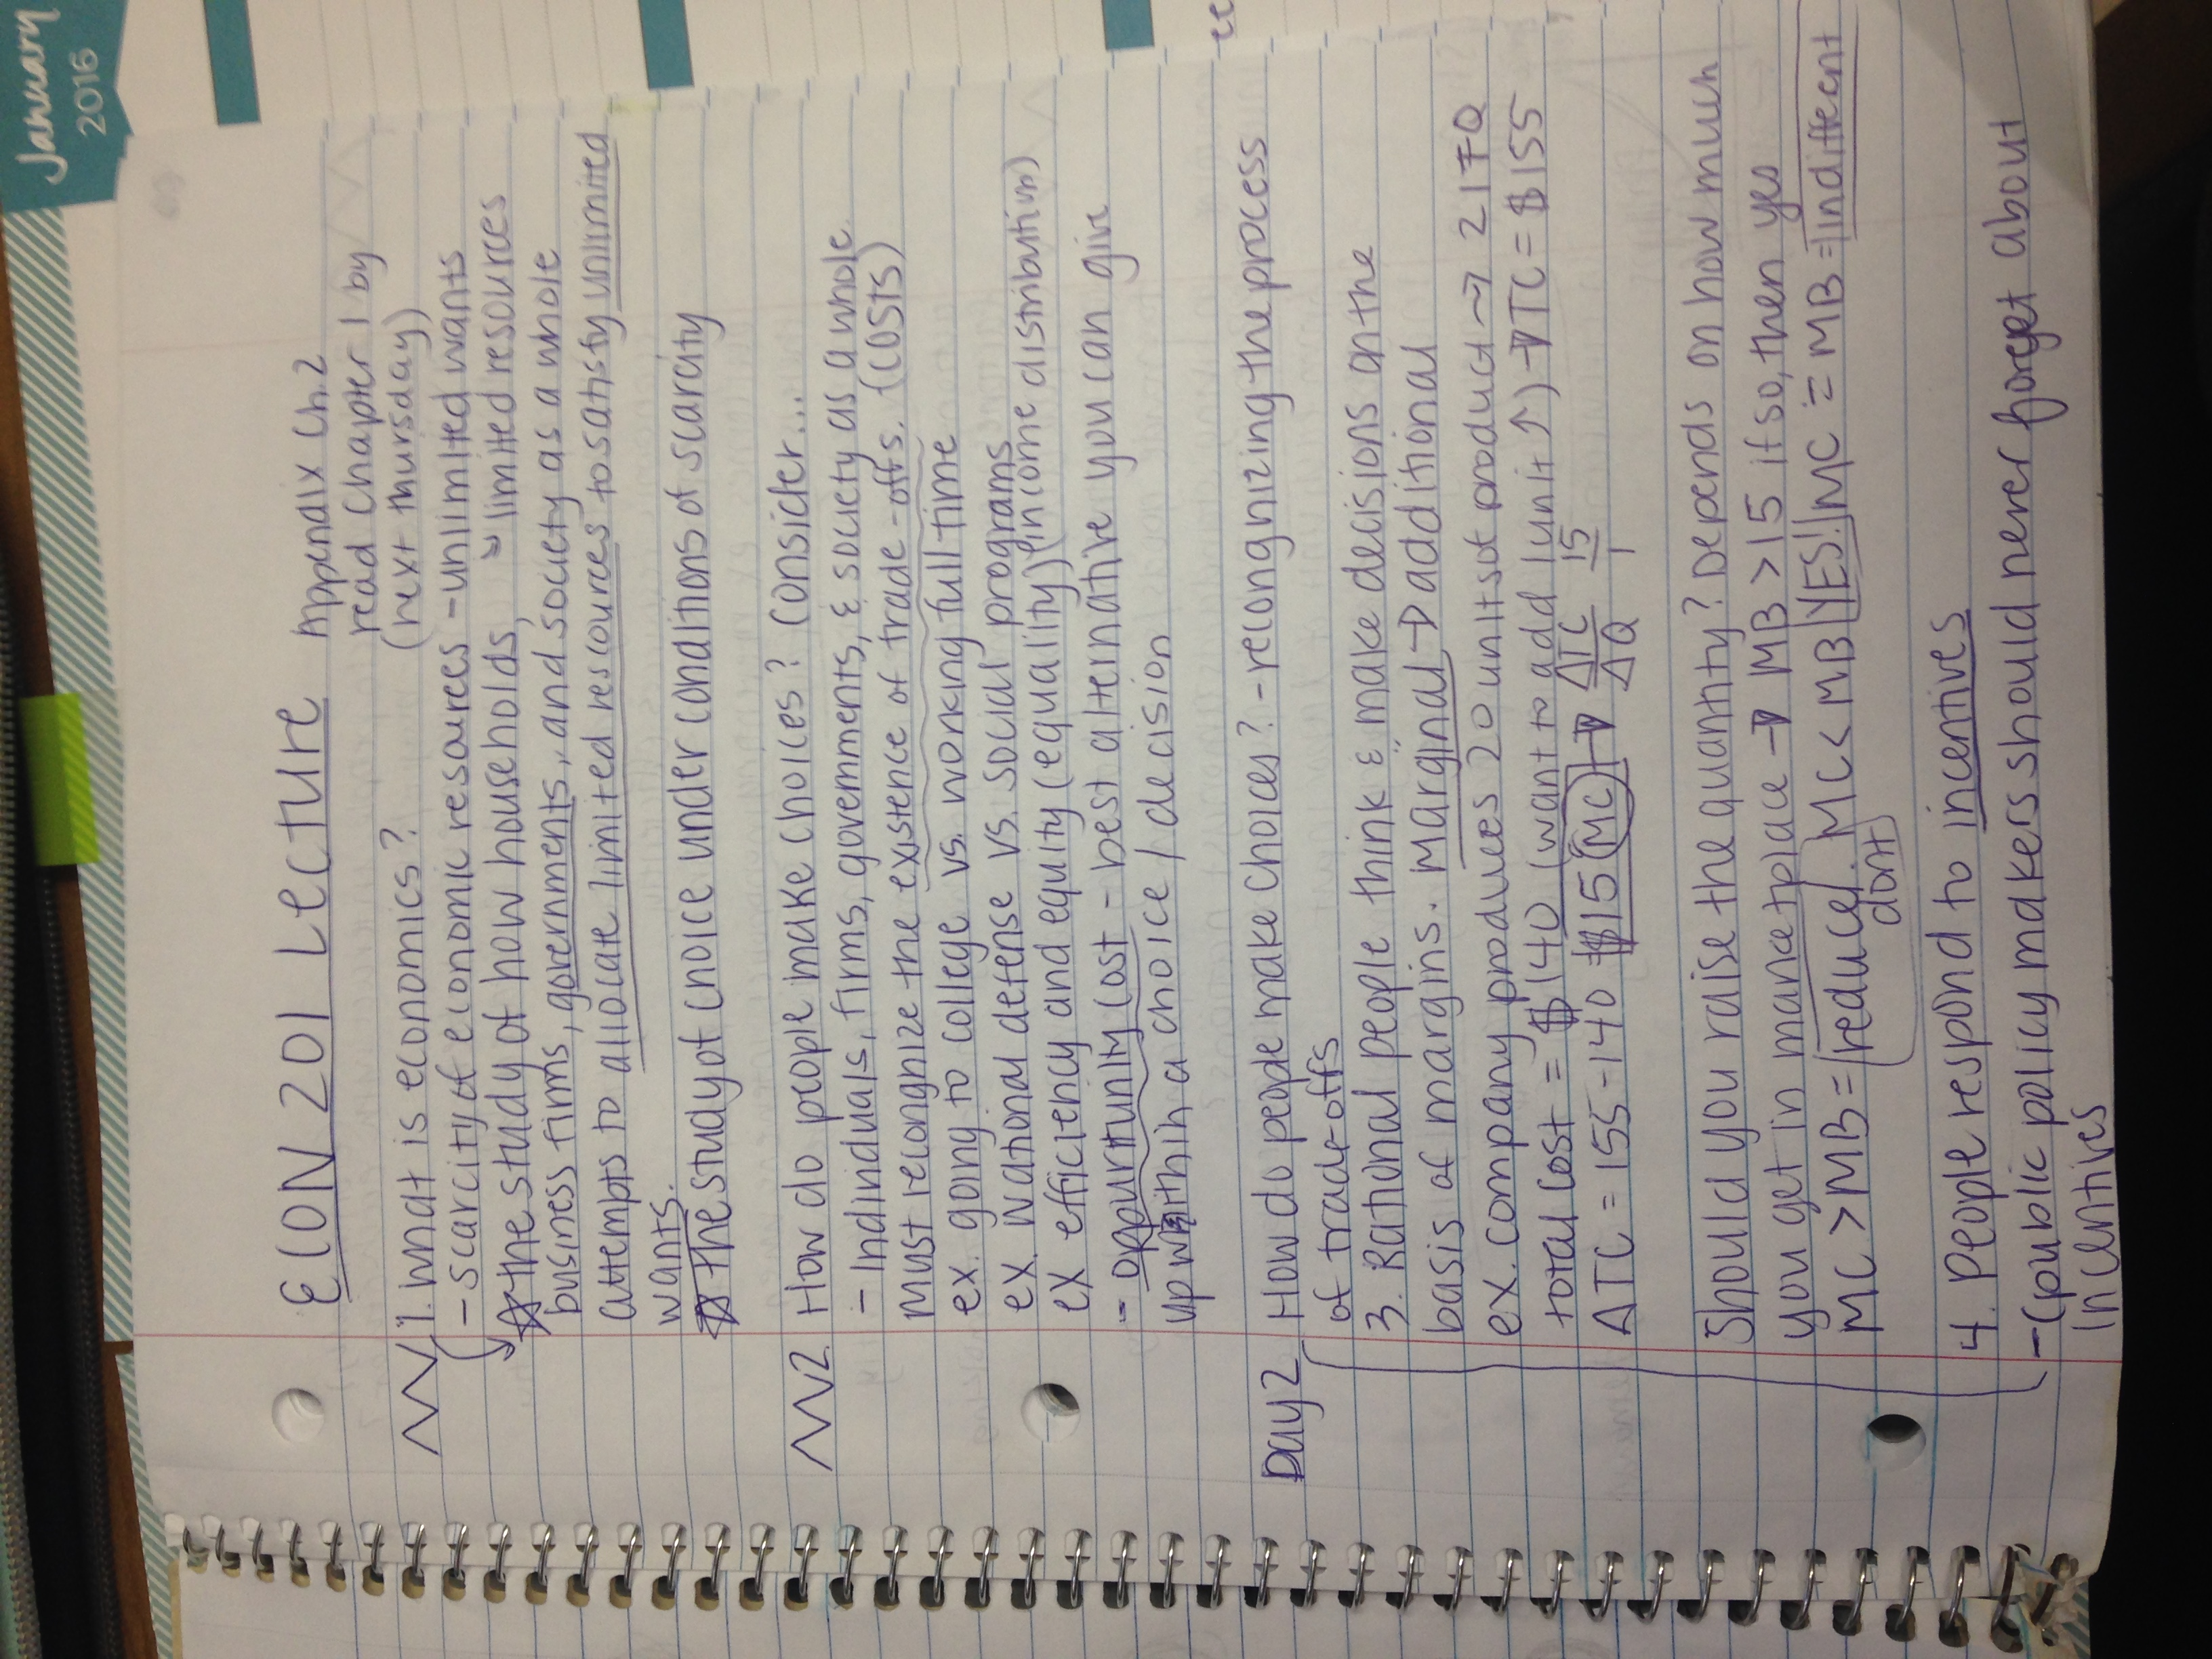 January
2016
ECON 201 Lecture
Appendix Ch.2
read chapter 1 by
(next thursday)
1. what is economics?
- scarcity of economic resources - unlimited wants
↘ limited resources
☆ the study of how households,
business firms, governments, and society as a whole
attempts to allocate limited rescources to satisfy unlimited
wants.
☆ The study of choice under conditions of scarcity
2. How do people make choices? Consider...
- Individuals, firms, governments, & society as a whole
must recongnize the existence of trade-offs. (COSTS)
ex. going to college vs. working full time
ex. national defense vs. social programs
ex efficiency and equity (equality) (income distribution)
- opputrtunity cost - best alternative you can give
up within a choice / decision
Day 2 How do people make choices? - recongnizing the process
of trade-offs
3. Rational people think & make decisions on the
basis of margins. Marginal → additional
ex. company produces 20 units of product → 21 FQ
total cost = $140 (want to add 1 unit ↑) → TC = $155
ATC = 155-140 $15 (MC) → ΔTC/ΔQ 15/1
Should you raise the quantity? Depends on how much
you get in marketplace → MB > 15 if so, then yes
MC > MB = reduce/dont. MC < MB YES! MC = MB = indifferent
4. People respond to incentives
- (public policy makers should never forget about
incentives